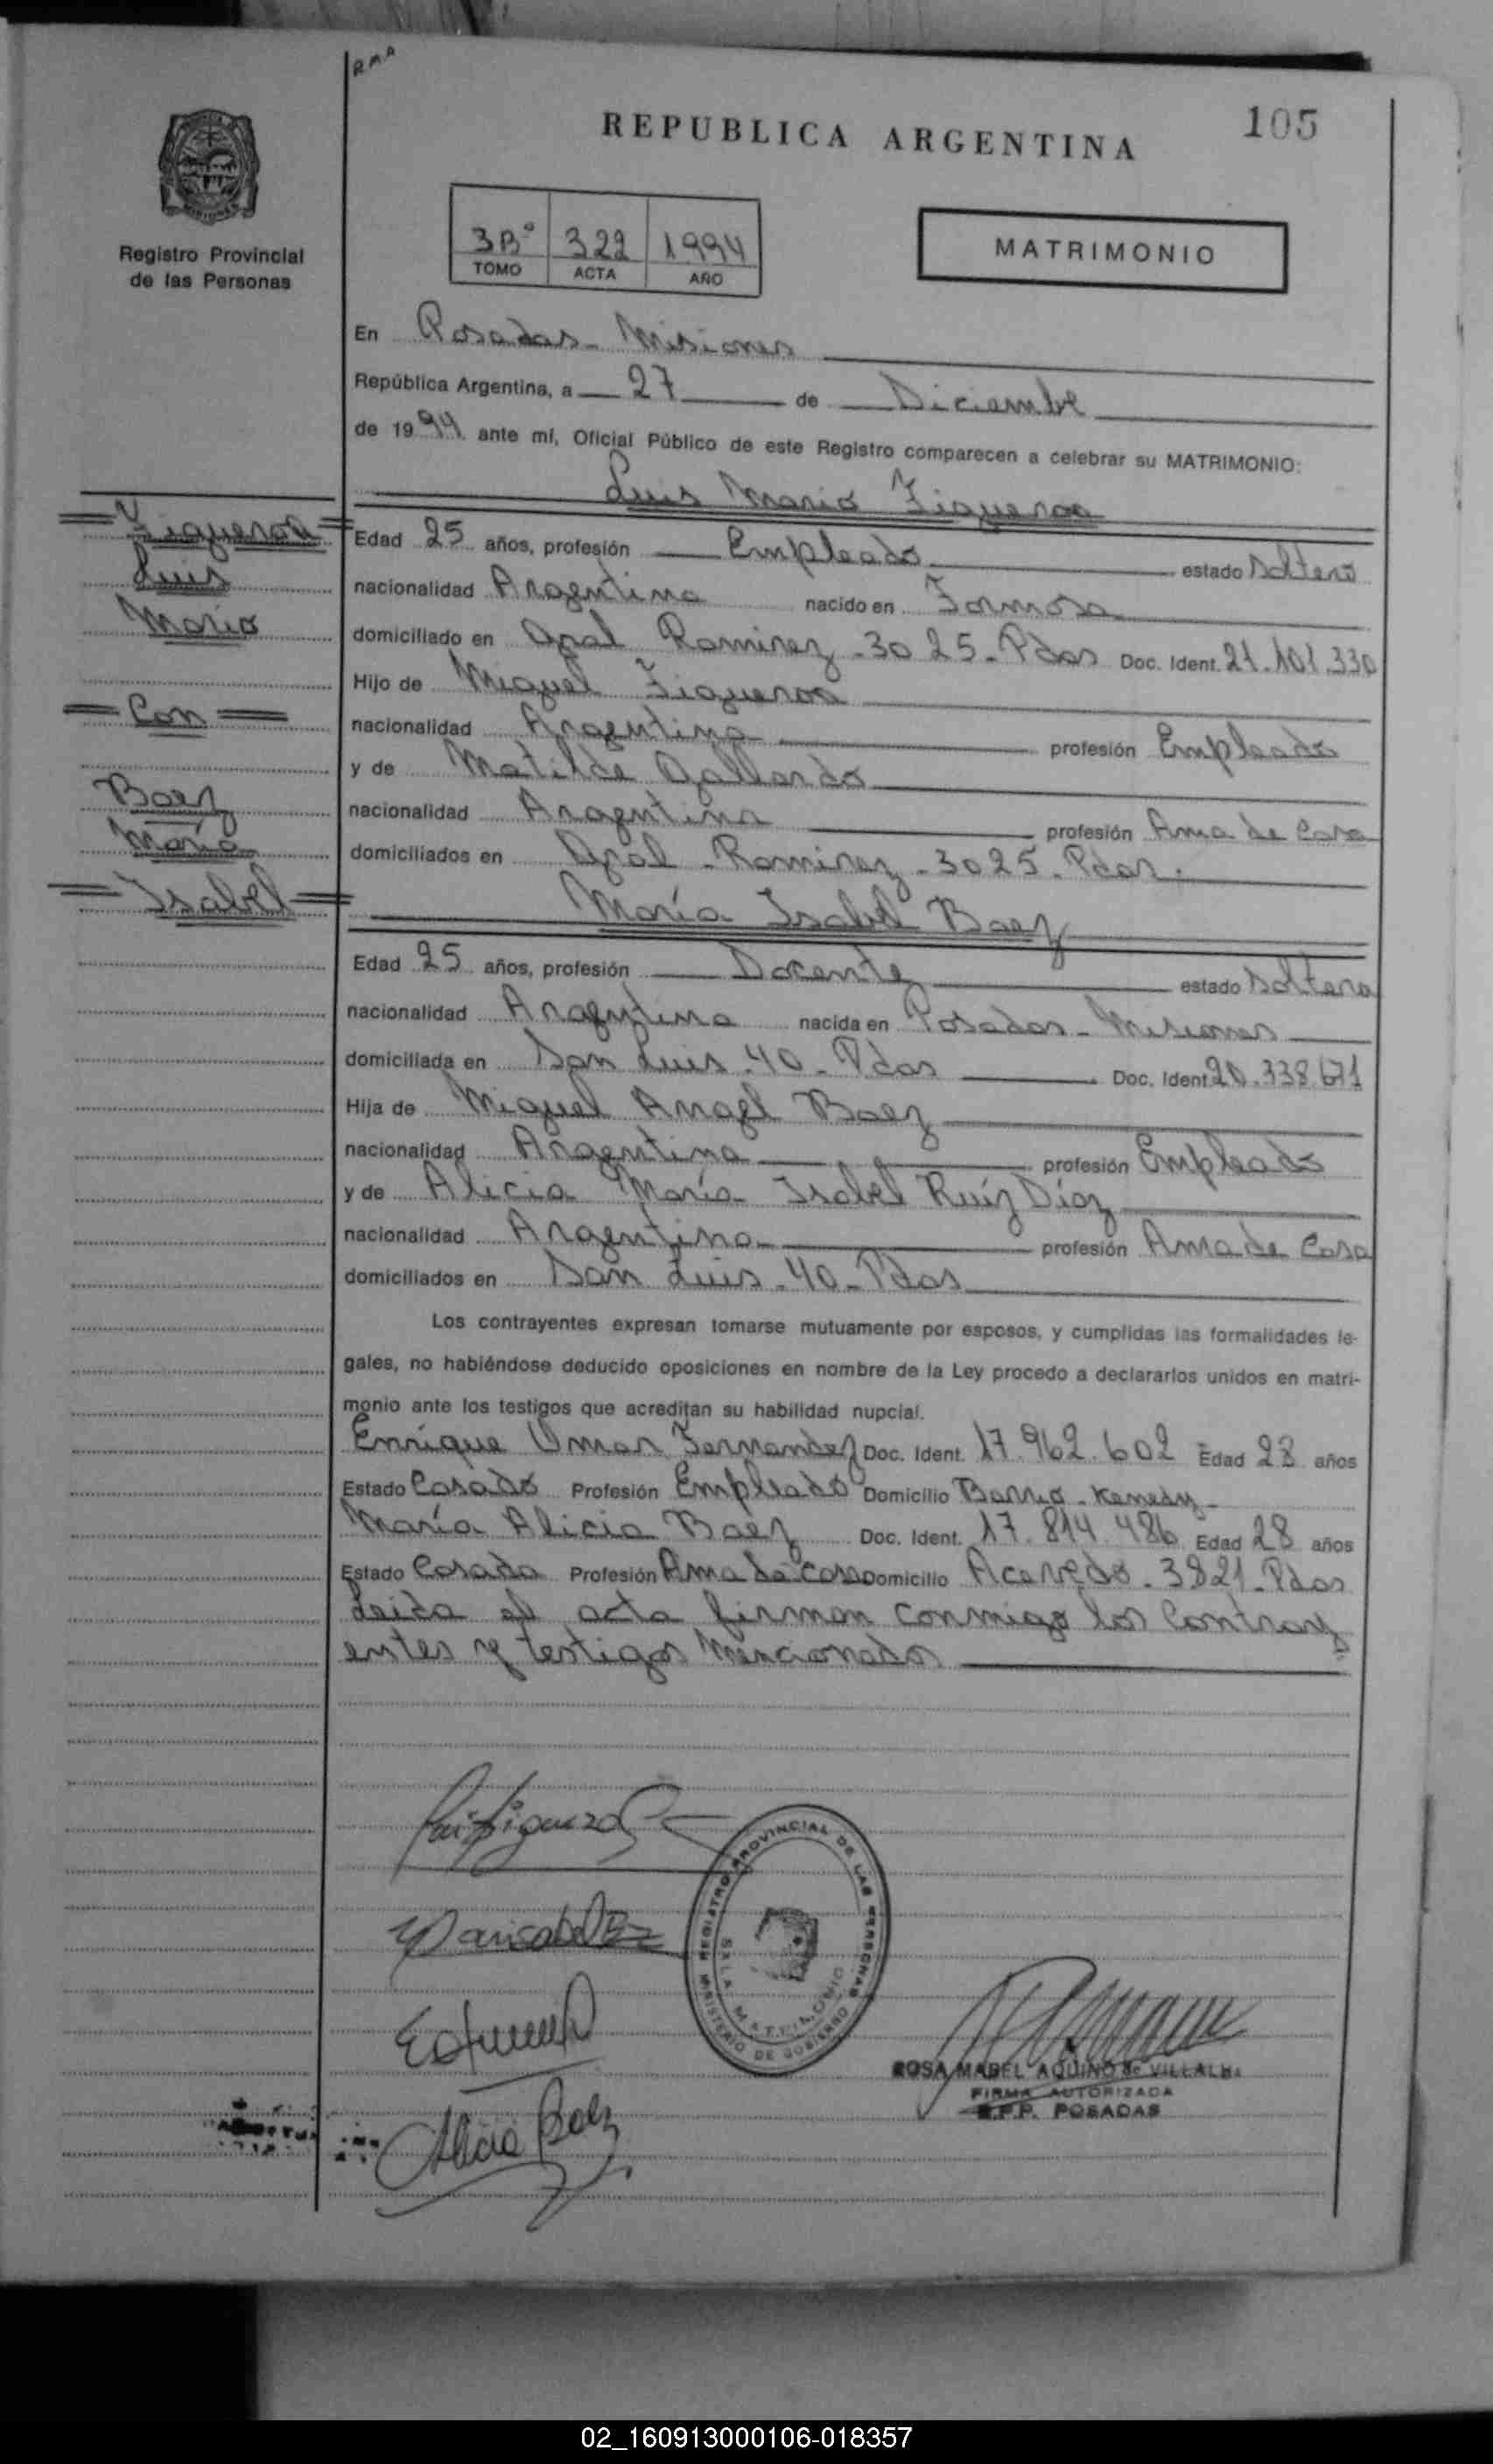 RMA
REPUBLICA ARGENTINA
105
Registro Provincial
de las Personas
3Bº 322 1994
TOMO ACTA AÑO
MATRIMONIO
En Posadas - Misiones
República Argentina, a 27 de Diciembre
de 1994 ante mí, Oficial Público de este Registro comparecen a celebrar su MATRIMONIO:
Luis Mario Figueroa
Figueroa
Luis
Mario
Con
Baez
María
Isabel
Edad 25 años, profesión Empleado estado Soltero
nacionalidad Argentina nacido en Formosa
domiciliado en Gral Ramirez - 3025 - Pdas Doc. Ident. 21.101.330
Hijo de Miguel Figueroa
nacionalidad Argentina profesión Empleado
y de Matilde Gallardo
nacionalidad Argentina profesión Ama de Casa
domiciliados en Gral - Ramirez - 3025 - Pdas.
María Isabel Baez
Edad 25 años, profesión Docente estado Soltera
nacionalidad Argentina nacida en Posadas - Misiones
domiciliada en San Luis - 40 - Pdas Doc. Ident. 20.338.671
Hija de Miguel Angel Baez
nacionalidad Argentina profesión Empleado
y de Alicia María Isabel Ruíz Díaz
nacionalidad Argentina profesión Ama de Casa
domiciliados en San Luis - 40 - Pdas
Los contrayentes expresan tomarse mutuamente por esposos, y cumplidas las formalidades le-
gales, no habiéndose deducido oposiciones en nombre de la Ley procedo a declararlos unidos en matri-
monio ante los testigos que acreditan su habilidad nupcial.
Enrique Omar Fernandez Doc. Ident. 17.962.602 Edad 28 años
Estado Casado Profesión Empleado Domicilio Barrio - Kenedy -
María Alicia Baez Doc. Ident. 17.814.486 Edad 28 años
Estado Casada Profesión Ama de casa Domicilio Acevedo - 3821 - Pdas
Leida el acta firman conmigo los Contray
entes y testigos Mencionados
Luis Figueroa
Marisabel
REGISTRO PROVINCIAL DE LAS PERSONAS
SALA MATRIMONIO
MINISTERIO DE GOBIERNO
ROSA MABEL AQUINO de VILLALBA
FIRMA AUTORIZADA
R.P.P. POSADAS
Alicia Baez
02_160913000106-018357